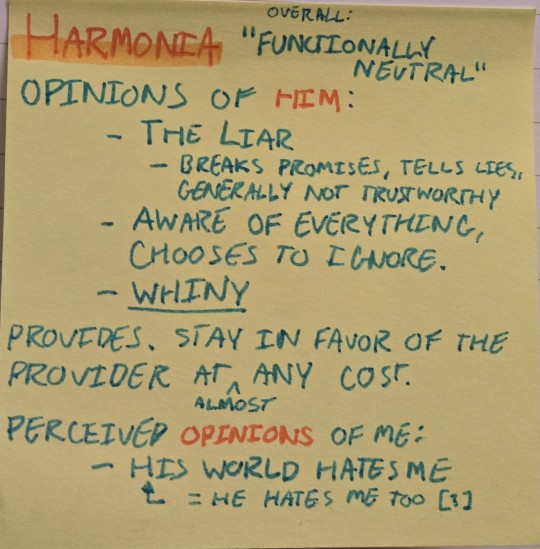 OVERALL:
HARMONIA "FUNCTIONALLY
NEUTRAL"
OPINIONS OF HIM:
- THE LIAR
- BREAKS PROMISES, TELLS LIES,
GENERALLY NOT TRUSTWORTHY
- AWARE OF EVERYTHING,
CHOOSES TO IGNORE.
- WHINY
PROVIDES. STAY IN FAVOR OF THE
PROVIDER AT ^ ANY COST.
ALMOST
PERCEIVED OPINIONS OF ME:
- HIS WORLD HATES ME
= HE HATES ME TOO [3]